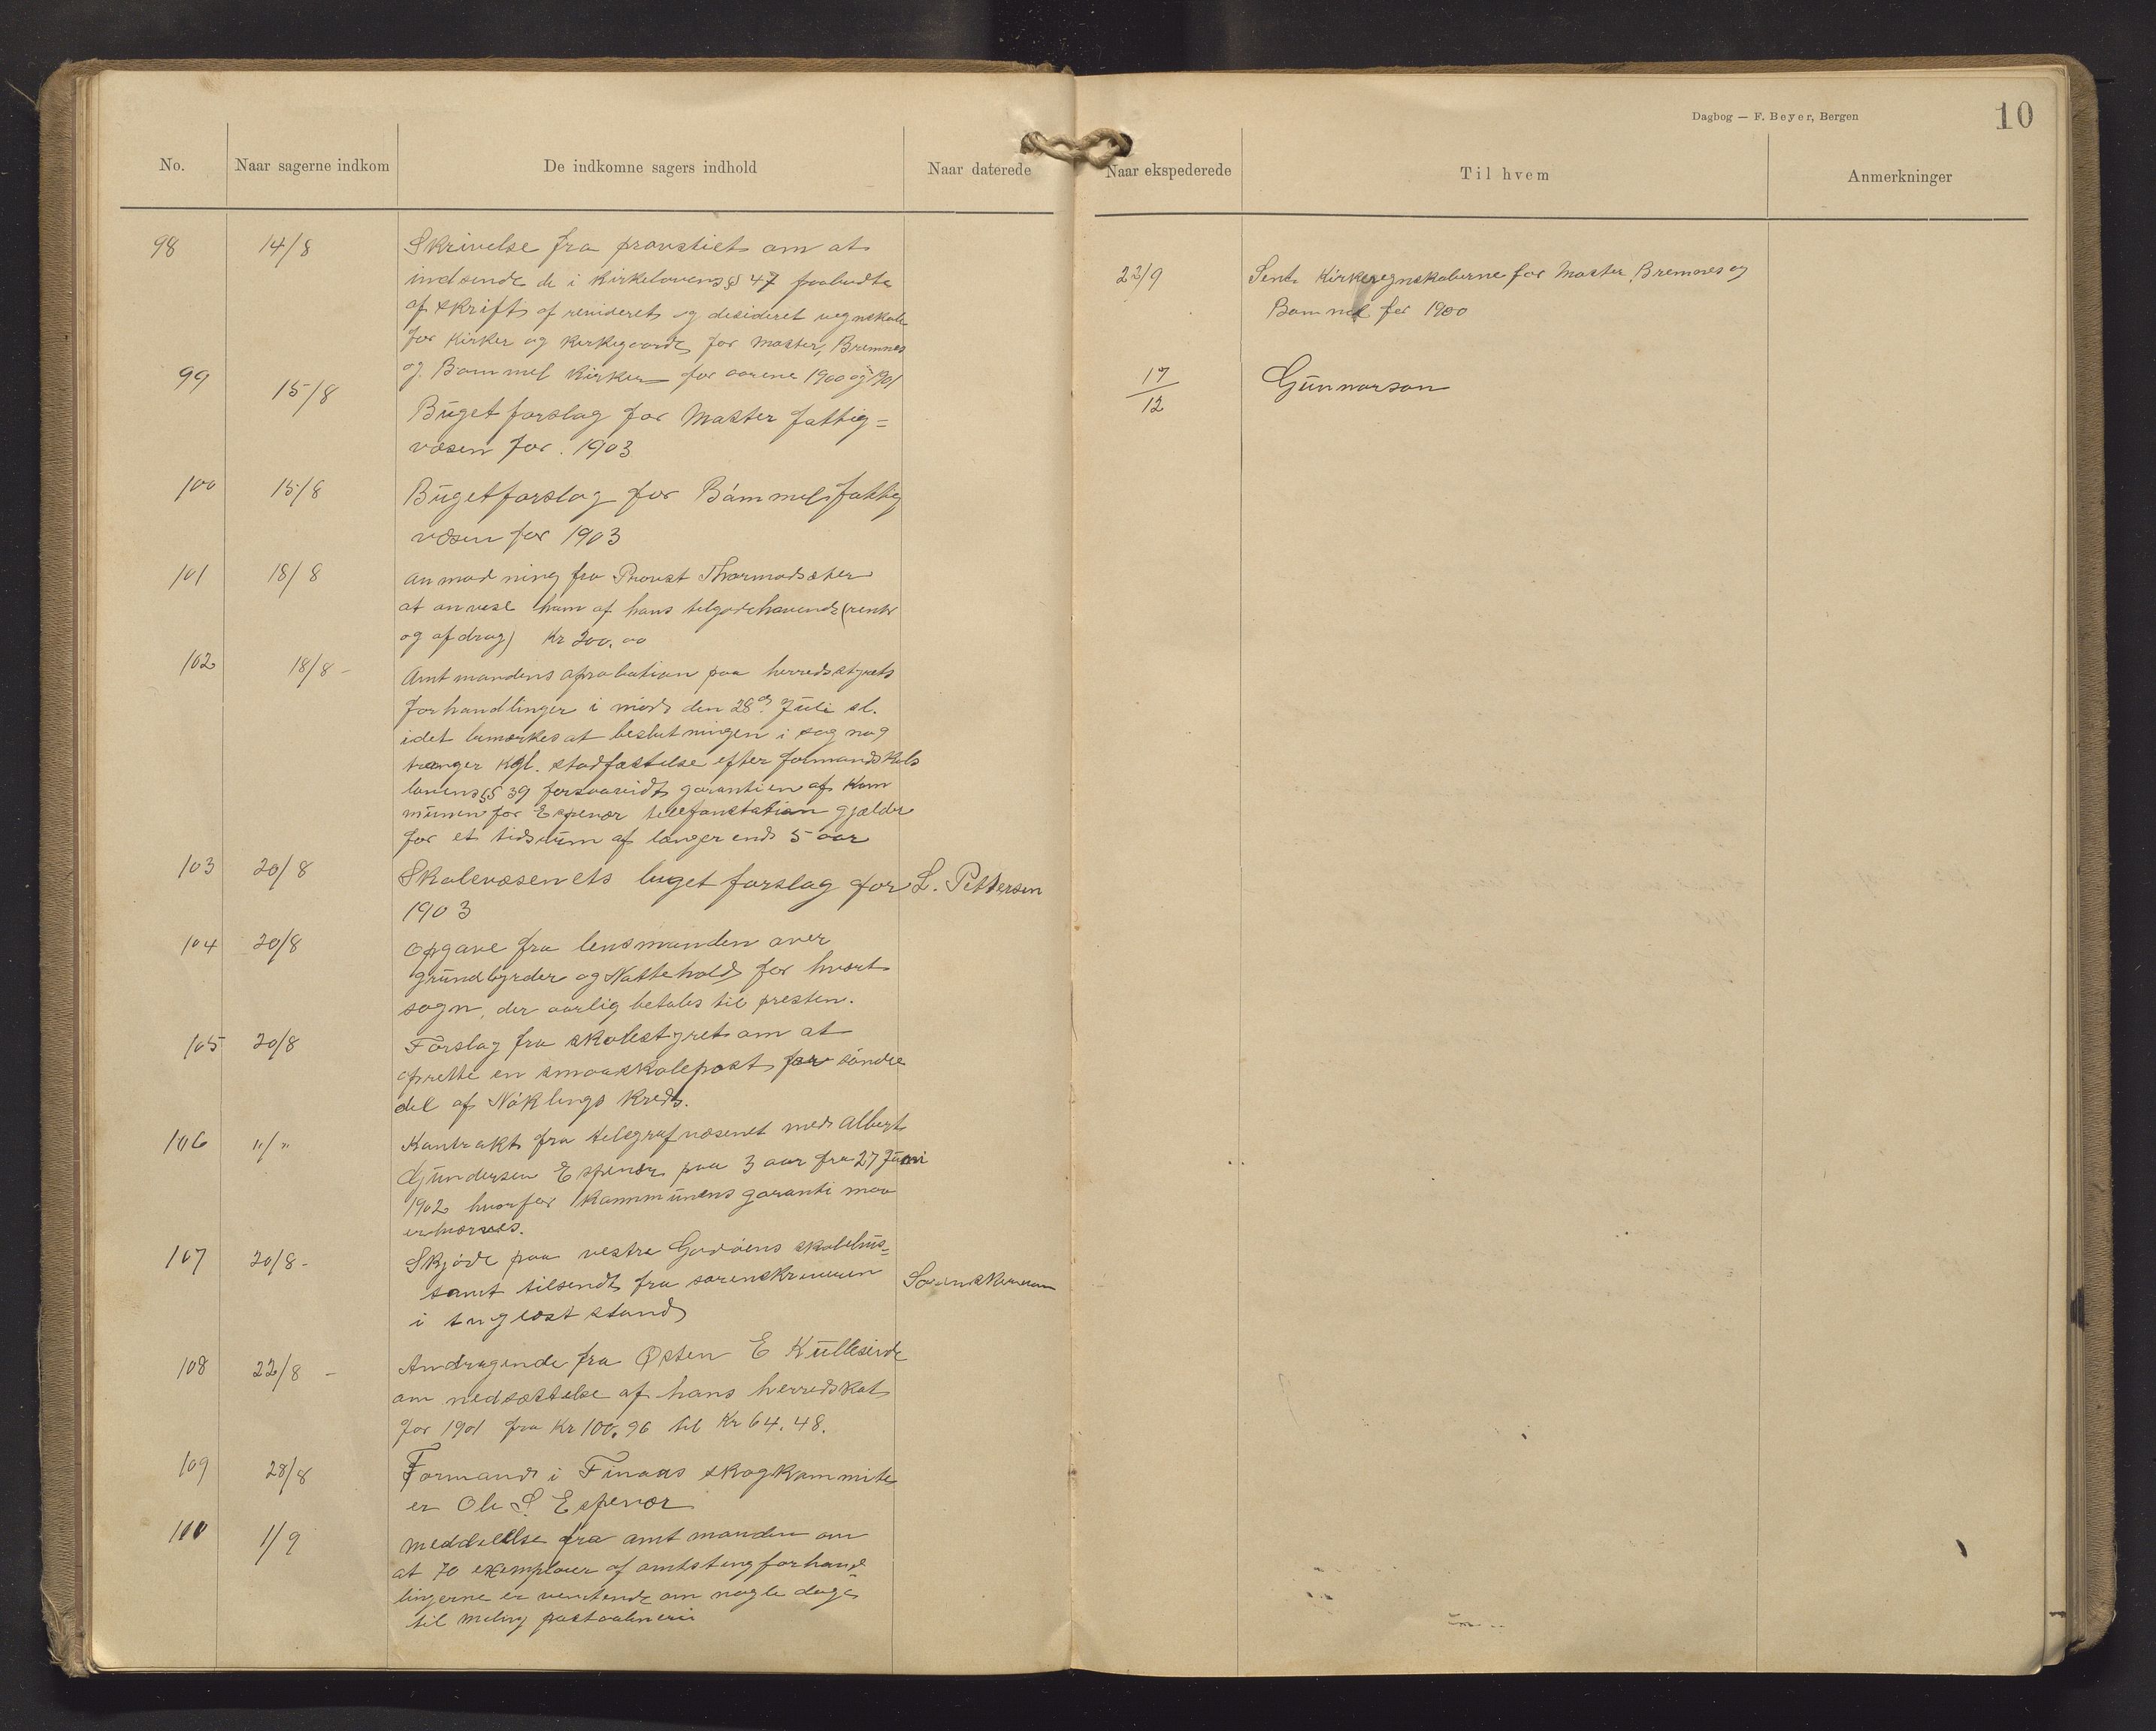 Dagbog — F. Beyer, Bergen
10
No.
Naar sagerne indkom
De indkomne sagers indhold
Naar daterede
Naar ekspederede
Til hvem
Anmerkninger
98 14/8 Skrivelse fra provstiet om at
indsende de i Kirkelovens § 47 paabudte
afskrift af revideret og desideret regnskab
for Kirker og Kirkegaarde for Moster, Bremnes
og Bømmel Kirker for aarene 1900 og 1901
23/9 Sent Kirkeregnskaberne for Moster, Bremnes og
Bømmel for 1900
99 15/8 Büget forslag for Moster fattig=
væsen for 1903
17/12 Günnarson
100 15/8 Bügetforslag for Bømmels fattig
væsen for 1903
101 18/8 Anmodning fra Provst Thormodsæter
at anvise ham af hans tilgodehavende (rente
og afdrag) Kr 200.00
102 18/8 - Amtmandens aprobation paa herredsstyrets
forhandlinger i møde den 28de Jüli sl.
idet bemærkes at beslutningen i sag no 9
trænger Kgl. stadfæstelse efter formandskabs
lovens § 39 forsaavidt garantien af Kom
münen for Espevær telefonstation gjælder
for et tidsrüm af længer end 5 aar
103 20/8 Skolevæsenets büget forslag for L. Pettersen
1903
104 20/8 Opgave fra lensmanden over
gründbyrder og Nattehold for hvert
sogn, der aarlig betales til presten.
105 20/8 Forslag fra skolestyret om at
oprette en smaaskolepost for søndre
del af Nøklings Kreds.
106 "/" Kontrakt fra telegrafvæsenet med Albert
Gündersen Espevær paa 3 aar fra 27 Jüni
1902 hvorfor Kommünens garanti maa
erhverves.
107 20/8 - Skjøde paa vestre Godøens skolehüs=
tomt tilsendt fra sorenskriveren Sorenskriveren
i tinglæst stand
108 22/8 - Andragende fra Østen E Külleseide
om nedsættelse af hans herredskat
for 1901 fra Kr 100.96 til Kr 64.48.
109 28/8 Formand i Finaas skogkommite
er Ole S. Espevær
110 1/9 Meddelelse fra amtmanden om
at 70 exemplarer af amtstingforhand
lingerne er ventende om nogle dage
til Meling postaabneri